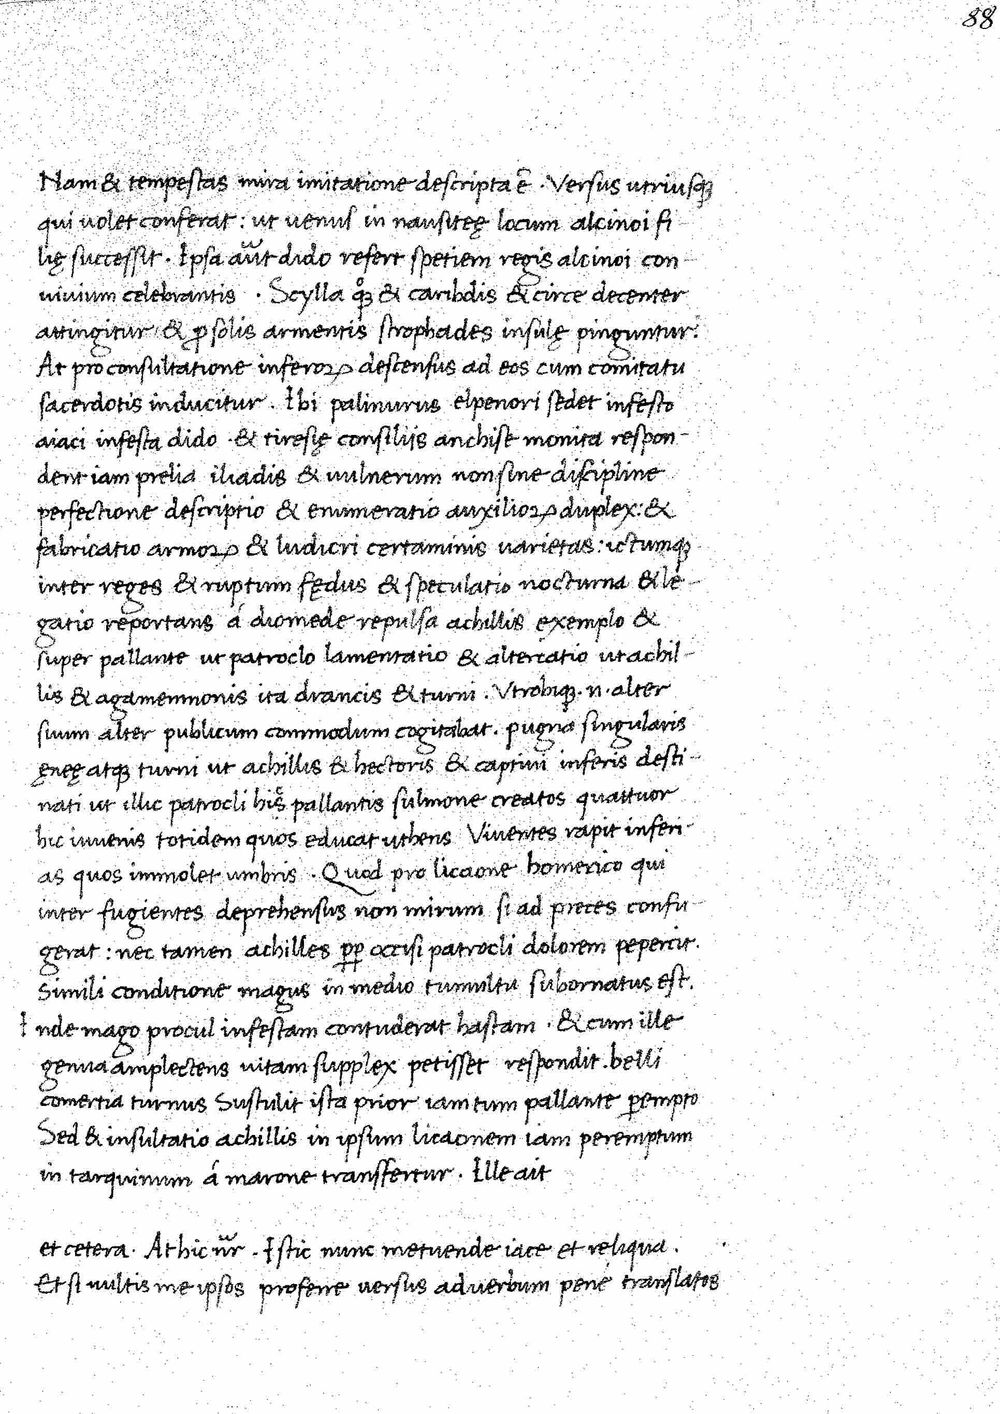 88
Nam & tempestas mira imitatione descripta ē . Versus utriusq;
qui uolet conferat : ut uenus in nausiteę locum alcinoi fi
lię successit . Ipsa aūt dido refert spetiem regis alcinoi con-
uiuium celebrantis . Scylla qͦq; & caribdis & circe decenter
attingitur & ꝓ solis armentis strophades insulę pinguntur.
At pro consultatione inferoꝝ descensus ad eos cum comitatu
sacerdotis inducitur . Ibi palinurus elpenori sedet infesto
aiaci infesta dido . & tiresię consilijs anchise monita respon-
dent iam prelia iliadis & uulnerum non sine discipline
perfectione descriptio & enumeratio auxilioꝝ duplex : &
fabricatio armoꝝ & ludicri certaminis uarietas : ictumq;
inter reges & ruptum fędus & speculatio nocturna & le-
gatio reportans á diomede repulsa achillis exemplo &
super pallante ut patroclo lamentatio & altercatio ut achil-
lis & agamemnonis ita drancis & turni . Vtrobiq; . n . alter
suum alter publicum commodum cogitabat . pugna singularis
ęneę atq; turni ut achillis & hectoris & captiui inferis desti-
nati ut illic patrocli his pallantis sulmone creatos quattuor
hic iuuenis totidem quos educat uthens Viuentes rapit inferi-
as quos immolet umbris . Quod pro licaone homerico qui
inter fugientes deprehensus non mirum si ad preces confu-
gerat : nec tamen achilles ꝑꝑ occisi patrocli dolorem pepercit .
Simili conditione magus in medio tumultu subornatus est .
Inde mago procul infestam contuderat hastam . & cum ille
genua amplectens uitam supplex petisset respondit . belli
comertia turnus Sustulit ista prior iam tum pallante ꝑempto
Sed & insultatio achillis in ipsum licaonem iam peremptum
in tarquinum á marone transfertur . Ille ait
et cetera . At hic ur̄ . Istic nunc metuende iace et reliqua .
Et si uultis me ipsos proferre uersus ad uerbum pene translatos